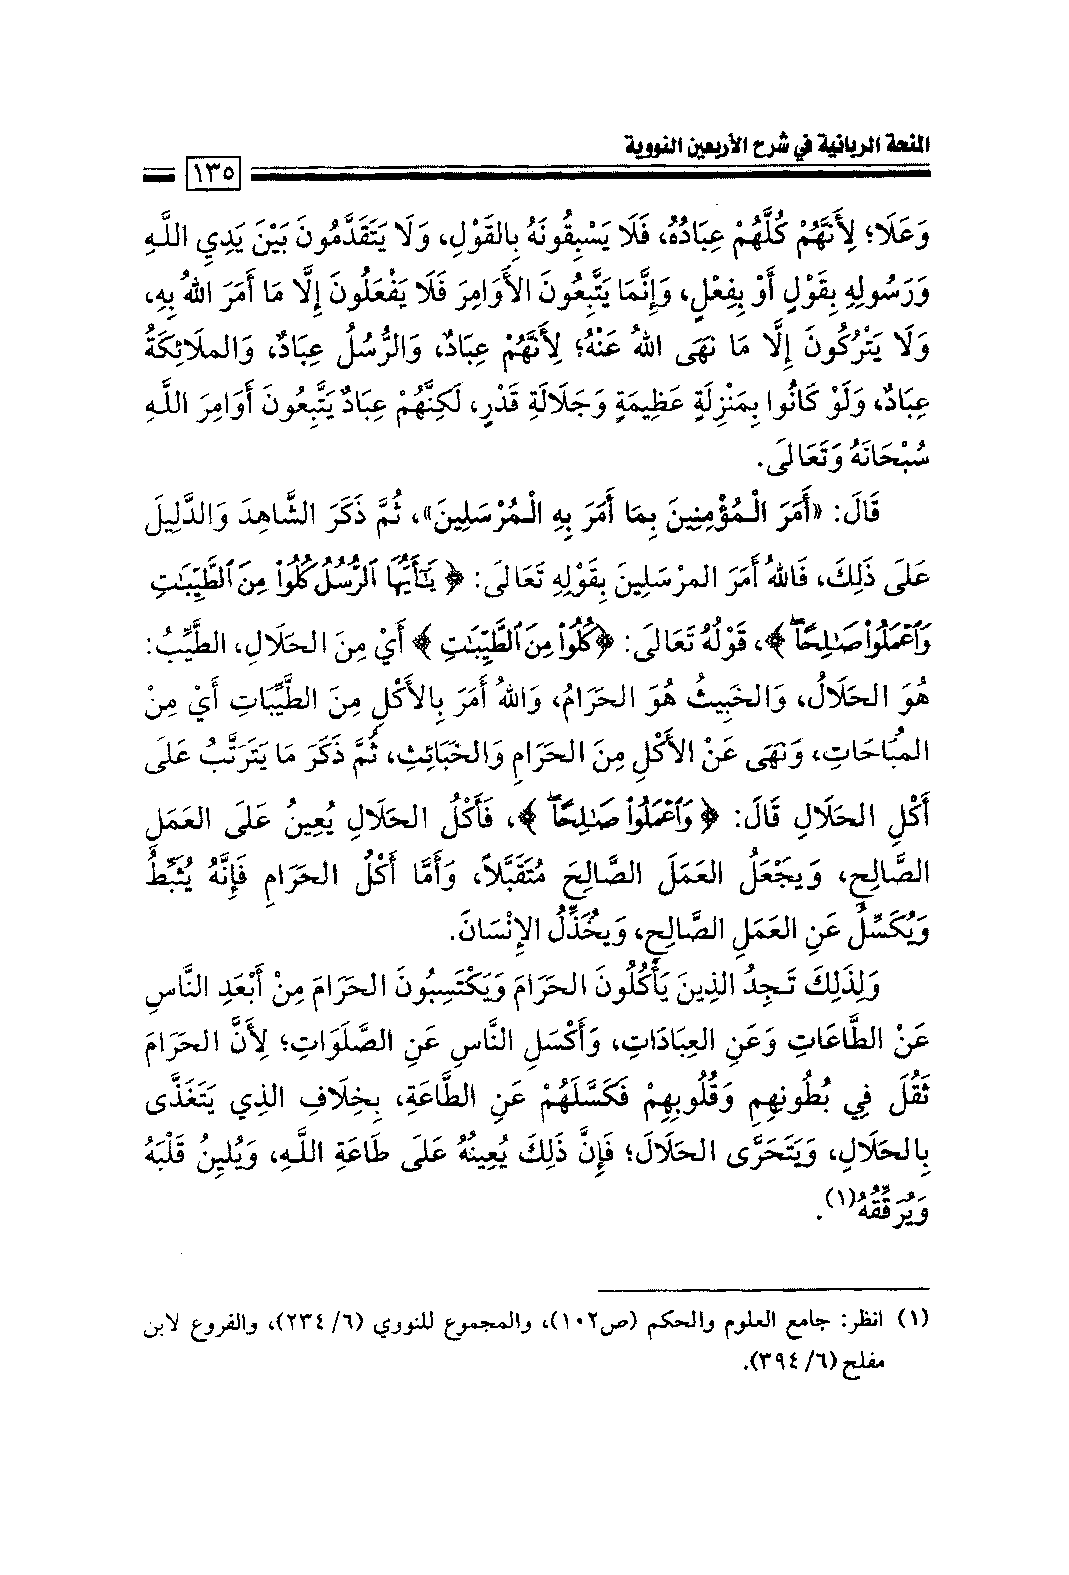 المنحة الربانية في شرح الأربعين النووية
١٣٥
وَعَلَا؛ لِأَنَّهُمْ كُلَّهُمْ عِبَادُهُ، فَلَا يَسْبِقُونَهُ بِالقَوْلِ، وَلَا يَتَقَدَّمُونَ بَيْنَ يَدِي اللَّهِ
وَرَسُولِهِ بِقَوْلٍ أَوْ بِفِعْلٍ، وَإِنَّمَا يَتَّبِعُونَ الأَوَامِرَ فَلَا يَفْعَلُونَ إِلَّا مَا أَمَرَ اللهُ بِهِ،
وَلَا يَتْرُكُونَ إِلَّا مَا نَهَى اللهُ عَنْهُ؛ لِأَنَّهُمْ عِبَادٌ، وَالرُّسُلُ عِبَادٌ، وَالملَائِكَةُ
عِبَادٌ، وَلَوْ كَانُوا بِمَنْزِلَةٍ عَظِيمَةٍ وَجَلَالَةِ قَدْرٍ، لَكِنَّهُمْ عِبَادٌ يَتَّبِعُونَ أَوَامِرَ اللَّهِ
سُبْحَانَهُ وَتَعَالَى.
قَالَ: «أَمَرَ الْمُؤْمِنِينَ بِمَا أَمَرَ بِهِ الْمُرْسَلِينَ»، ثُمَّ ذَكَرَ الشَّاهِدَ وَالدَّلِيلَ
عَلَى ذَلِكَ، فَاللهُ أَمَرَ المرْسَلِينَ بِقَوْلِهِ تَعَالَى: ﴿يَٰٓأَيُّهَا ٱلرُّسُلُ كُلُوا۟ مِنَ ٱلطَّيِّبَٰتِ
وَٱعْمَلُوا۟ صَٰلِحًاۖ﴾، قَوْلُهُ تَعَالَى: ﴿كُلُوا۟ مِنَ ٱلطَّيِّبَٰتِ﴾ أَيْ مِنَ الحَلَالِ، الطَّيِّبُ:
هُوَ الحَلَالُ، وَالخَبِيثُ هُوَ الحَرَامُ، وَاللهُ أَمَرَ بِالأَكْلِ مِنَ الطَّيِّبَاتِ أَيْ مِنْ
المُبَاحَاتِ، وَنَهَى عَنْ الأَكْلِ مِنَ الحَرَامِ وَالخَبَائِثِ، ثُمَّ ذَكَرَ مَا يَتَرَتَّبُ عَلَى
أَكْلِ الحَلَالِ قَالَ: ﴿وَٱعْمَلُوا۟ صَٰلِحًاۖ﴾، فَأَكْلُ الحَلَالِ يُعِينُ عَلَى العَمَلِ
الصَّالِحِ، وَيَجْعَلُ العَمَلَ الصَّالِحَ مُتَقَبَّلًا، وَأَمَّا أَكْلُ الحَرَامِ فَإِنَّهُ يُثَبِّطُ
وَيُكَسِّلُ عَنِ العَمَلِ الصَّالِحِ، وَيُخَذِّلُ الإِنْسَانَ.
وَلِذَلِكَ تَجِدُ الذِينَ يَأْكُلُونَ الحَرَامَ وَيَكْتَسِبُونَ الحَرَامَ مِنْ أَبْعَدِ النَّاسِ
عَنْ الطَّاعَاتِ وَعَنِ العِبَادَاتِ، وَأَكْسَلِ النَّاسِ عَنِ الصَّلَوَاتِ؛ لِأَنَّ الحَرَامَ
ثَقُلَ فِي بُطُونِهِمِ وَقُلُوبِهِمْ فَكَسَّلَهُمْ عَنِ الطَّاعَةِ، بِخِلَافِ الذِي يَتَغَذَّى
بِالحَلَالِ، وَيَتَحَرَّى الحَلَالَ؛ فَإِنَّ ذَلِكَ يُعِينُهُ عَلَى طَاعَةِ اللَّهِ، وَيُلِينُ قَلْبَهُ
وَيُرَقِّقُهُ(١).
(١) انظر: جامع العلوم والحكم (ص١٠٢)، والمجموع للنووي (٦/ ٢٣٤)، والفروع لابن
مفلح (٦/ ٣٩٤).